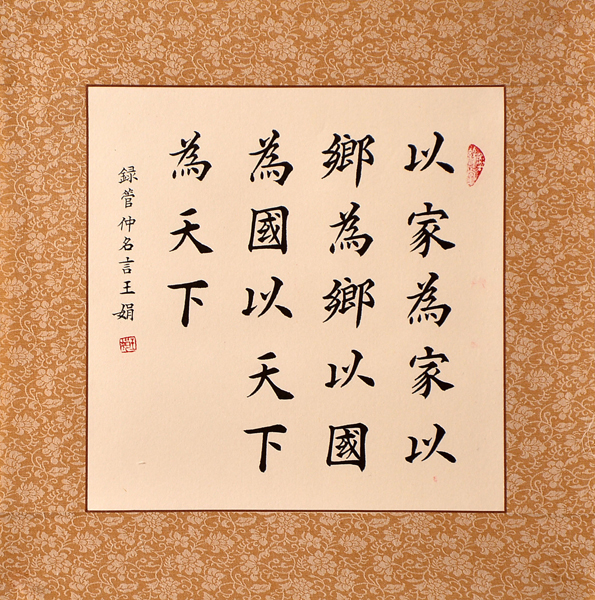 以家為家以
鄉為鄉以國
為國以天下
為天下
録管仲名言王娟